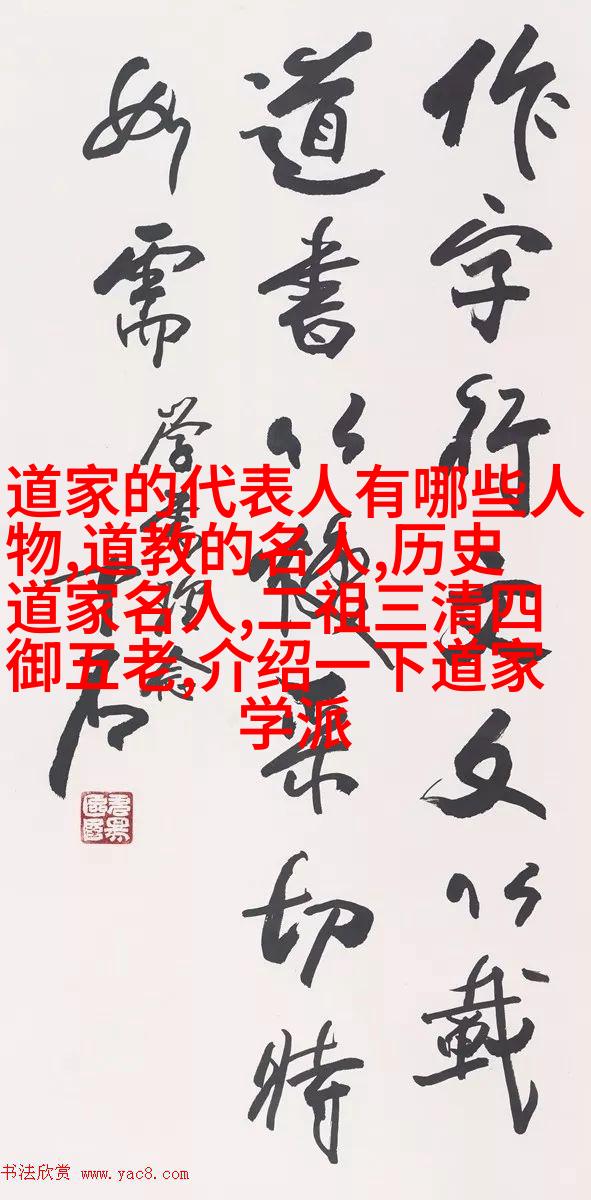 道家的代表人有哪些人
物,道教的名人,历史
道家名人,二祖三清四
御五老,介绍一下道家
学派
作字行文文以載
道書以焕采切時
如需
学書理念
中石
书法欣赏 www.yac8.com